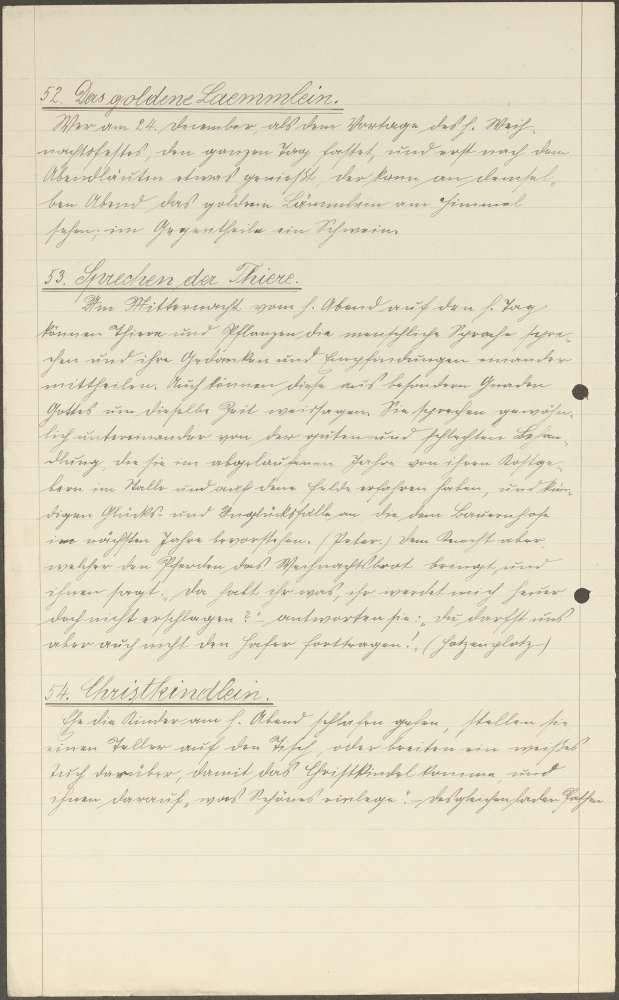 52. Das goldene Laemmlein.
Wer am 24. Dezember, als dem Vortage des h. Weih-
nachtsfestes, den ganzen Tag fastet, und erst nach dem
Abendläuten etwas genießt, der kann an demsel-
ben Abend das goldene Lämmlein am Himmel
sehen; im Gegentheile ein Schwein.
53. Sprechen der Thiere.
Um Mitternacht vom h. Abend auf den h. Tag
können Thiere und Pflanzen die menschliche Sprache spre-
chen und ihre Gedanken und Empfindungen einander
mittheilen. Auch können diese aus besondern Gnaden
Gottes um dieselbe Zeit weissagen. Sie sprechen gewöhn-
lich untereinander von der guten und schlechten Behan-
dlung, die sie im abgelaufenen Jahre von ihren Kostge-
bern im Stalle und auf dem Felde erfahren haben, und kün-
digen Glücks- und Unglücksfälle an, die dem Bauernhofe
im nächsten Jahre bevorstehen. (Peter.) Dem Knecht aber,
welcher den Pferden das Weihnachtsbrot bringt, und
ihnen sagt: "Da habt ihr was, ihr werdet mich heuer
doch nicht erschlagen?" antworten sie: "Du darfst uns
aber auch nicht den Hafer forttragen!" (Hotzenplotz)
54. Christkindlein.
Ehe die Kinder am h. Abend schlafen gehen, stellen sie
einen Teller auf den Tisch, oder breiten ein weißes
Tuch darüber, damit das Christkindel komme, und
ihnen darauf "was Schönes einlege". Desgleichen